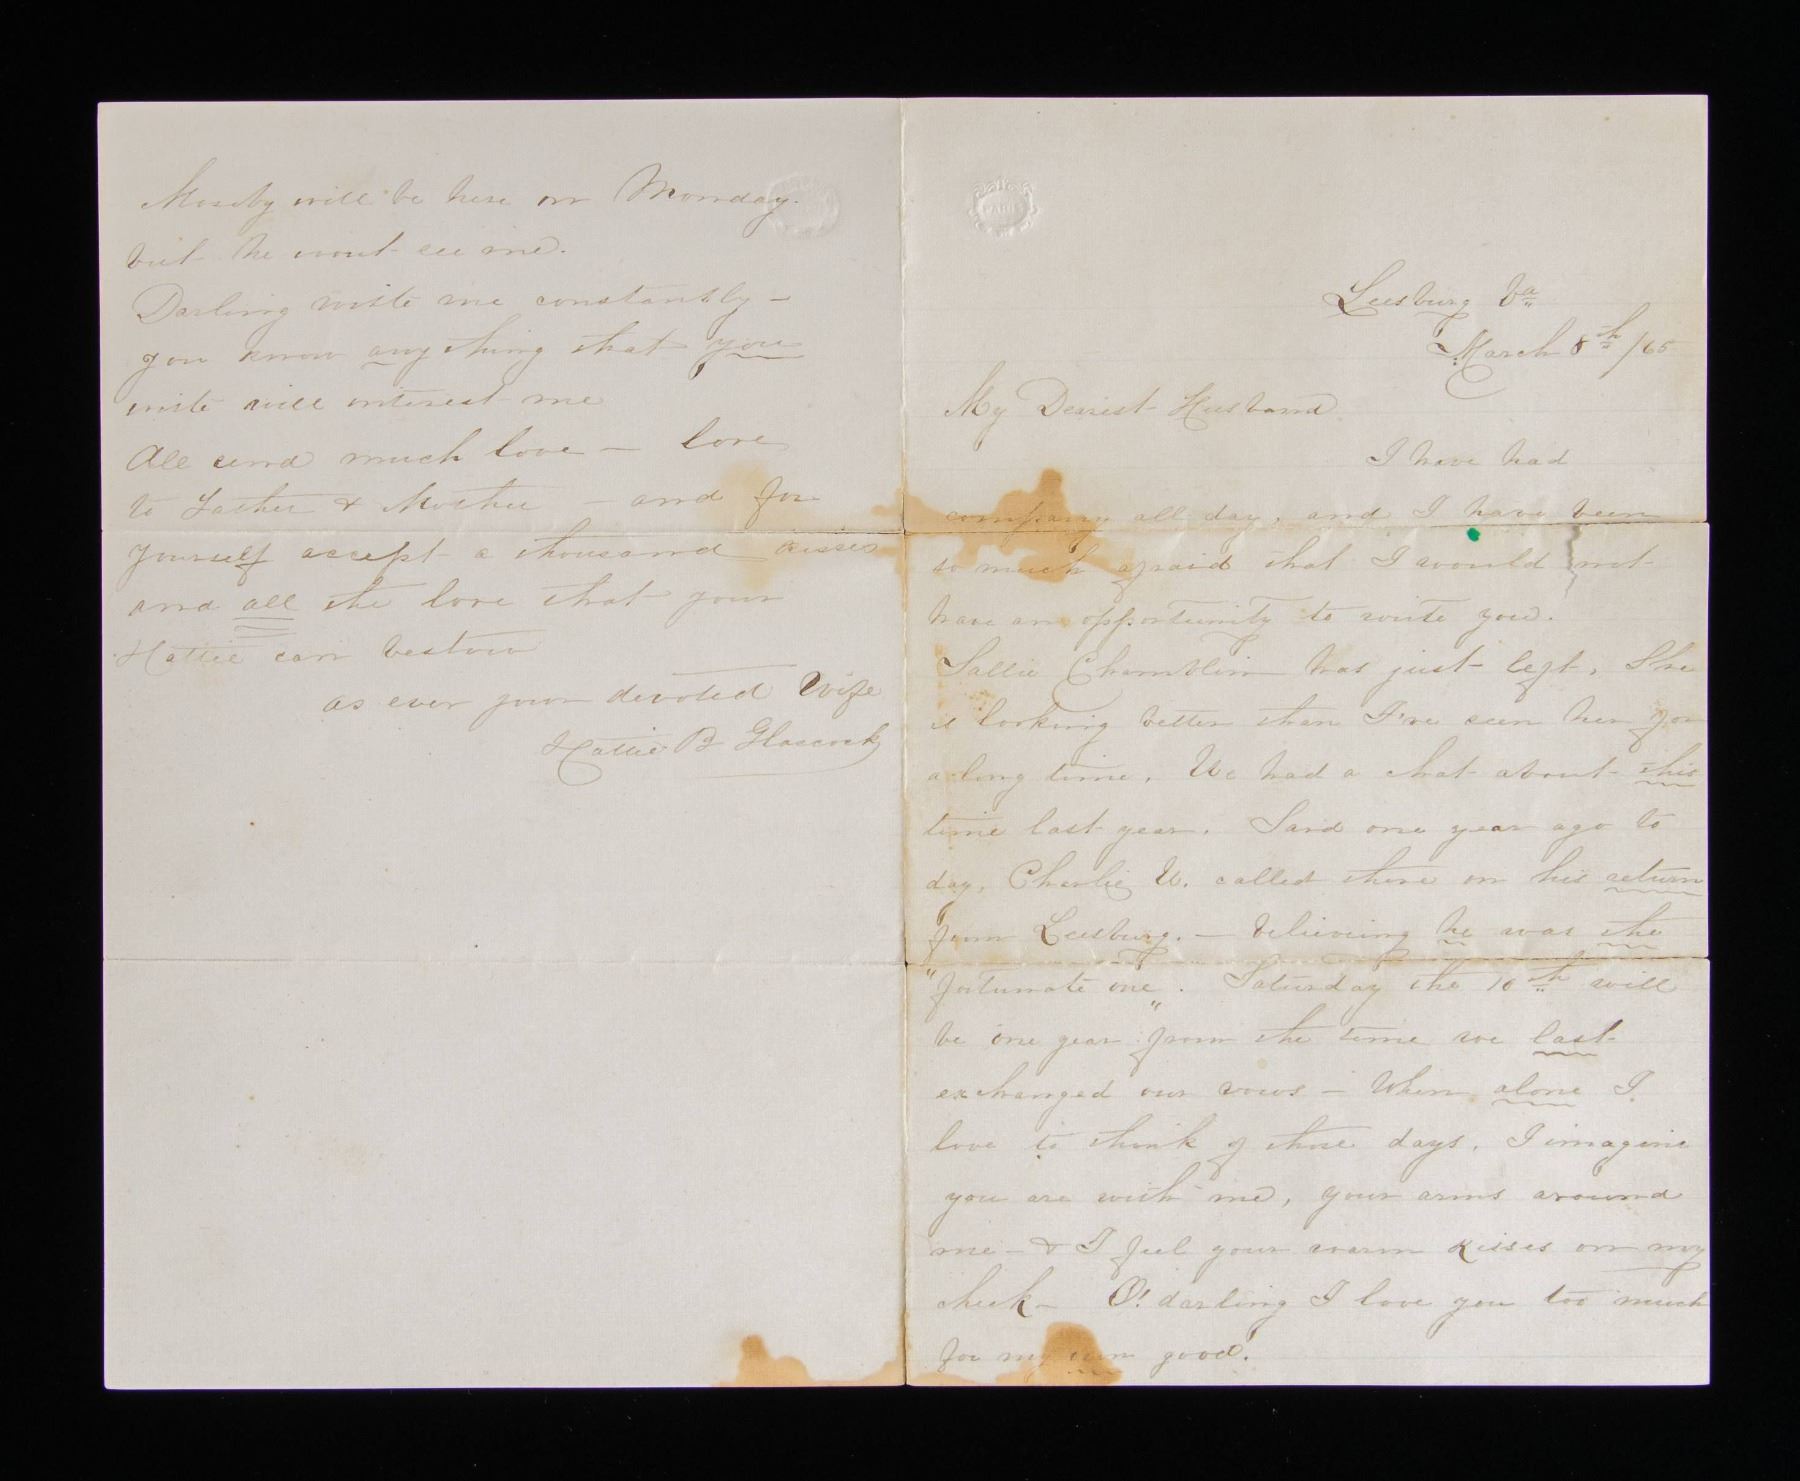 Leesburg Va
March 8th /65
My Dearest Husband
I have had
company all day, and I have been
so much afraid that I would not
have an opportunity to write you.
Sallie Chamblin has just left, She
is looking better than I've seen her for
a long time. We had a chat about this
time last year. Said one year ago to
day, Charlie W. called there on his return
from Leesburg. — believeing he was the
"fortunate one". Saturday the 10th will
be one year from the time we last
exchanged our vows — When alone I
love to think of those days. I imagine
you are with me, your arms around
me — & I feel your warm kisses on my
cheek — O! darling I love you too much
for my own good.
Mosby will be here on Monday.
but he wont see me.
Darling write me constantly —
you know anything that you
write will interest me
All send much love — love
to Father & Mother — and for
yourself accept a thousand kisses
and all the love that your
Hattie can bestow
as ever your devoted Wife
Hattie B Glascock